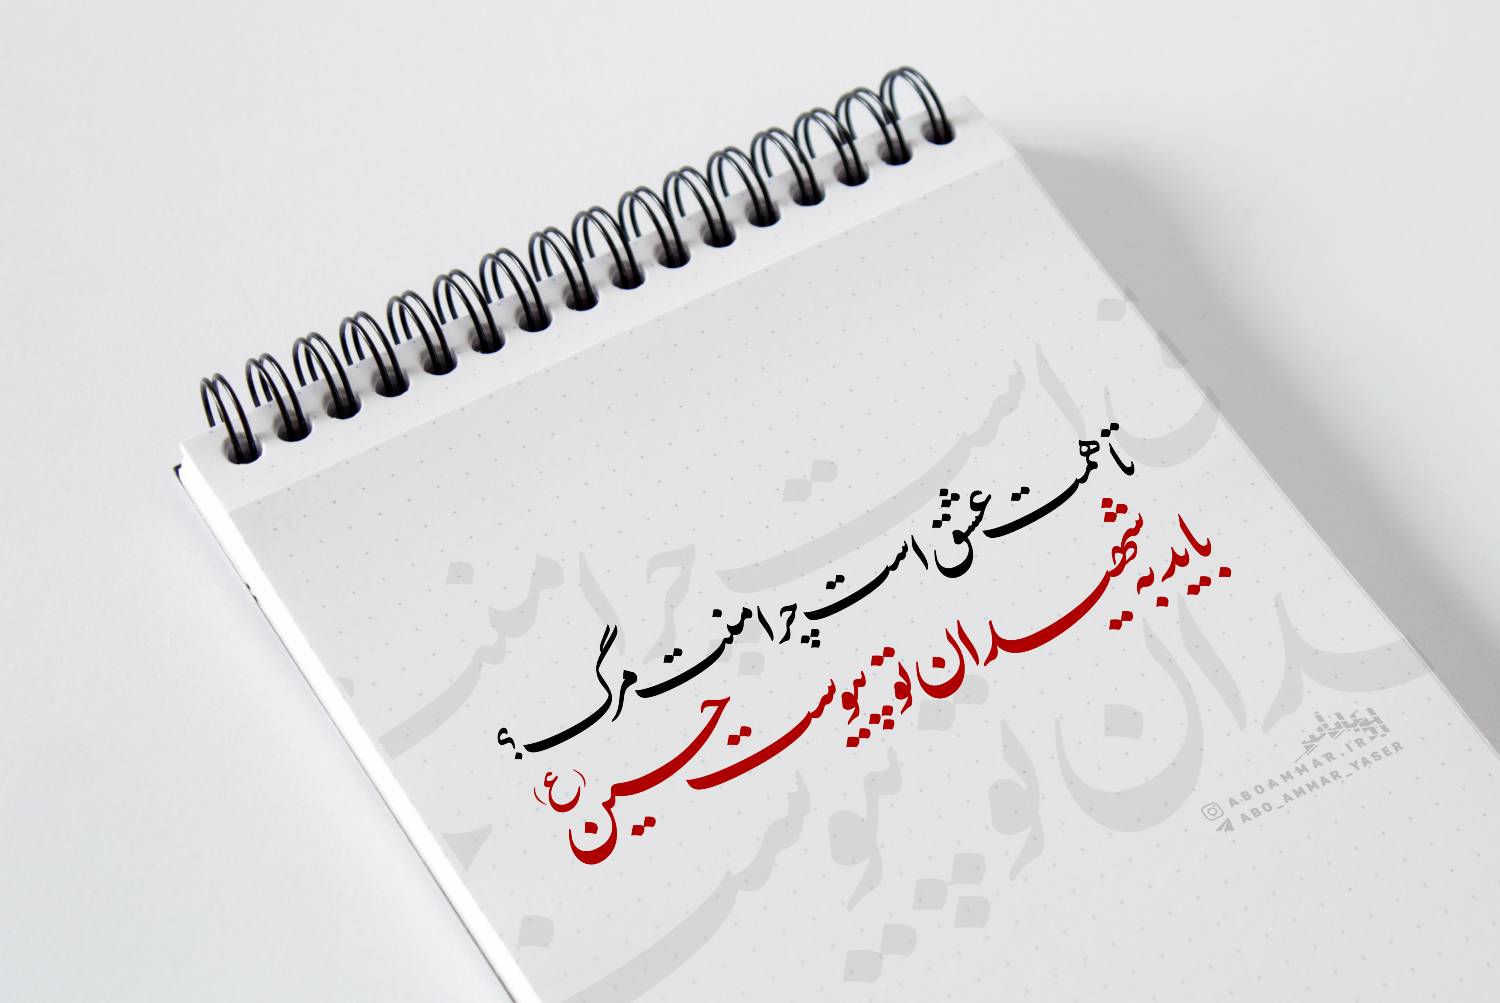 تا همت عشق است چرا منت مرگ؟
باید به شهیدان تو پیوست حسین (ع)
ABOAMMAR.IR
ABO_AMMAR_YASER